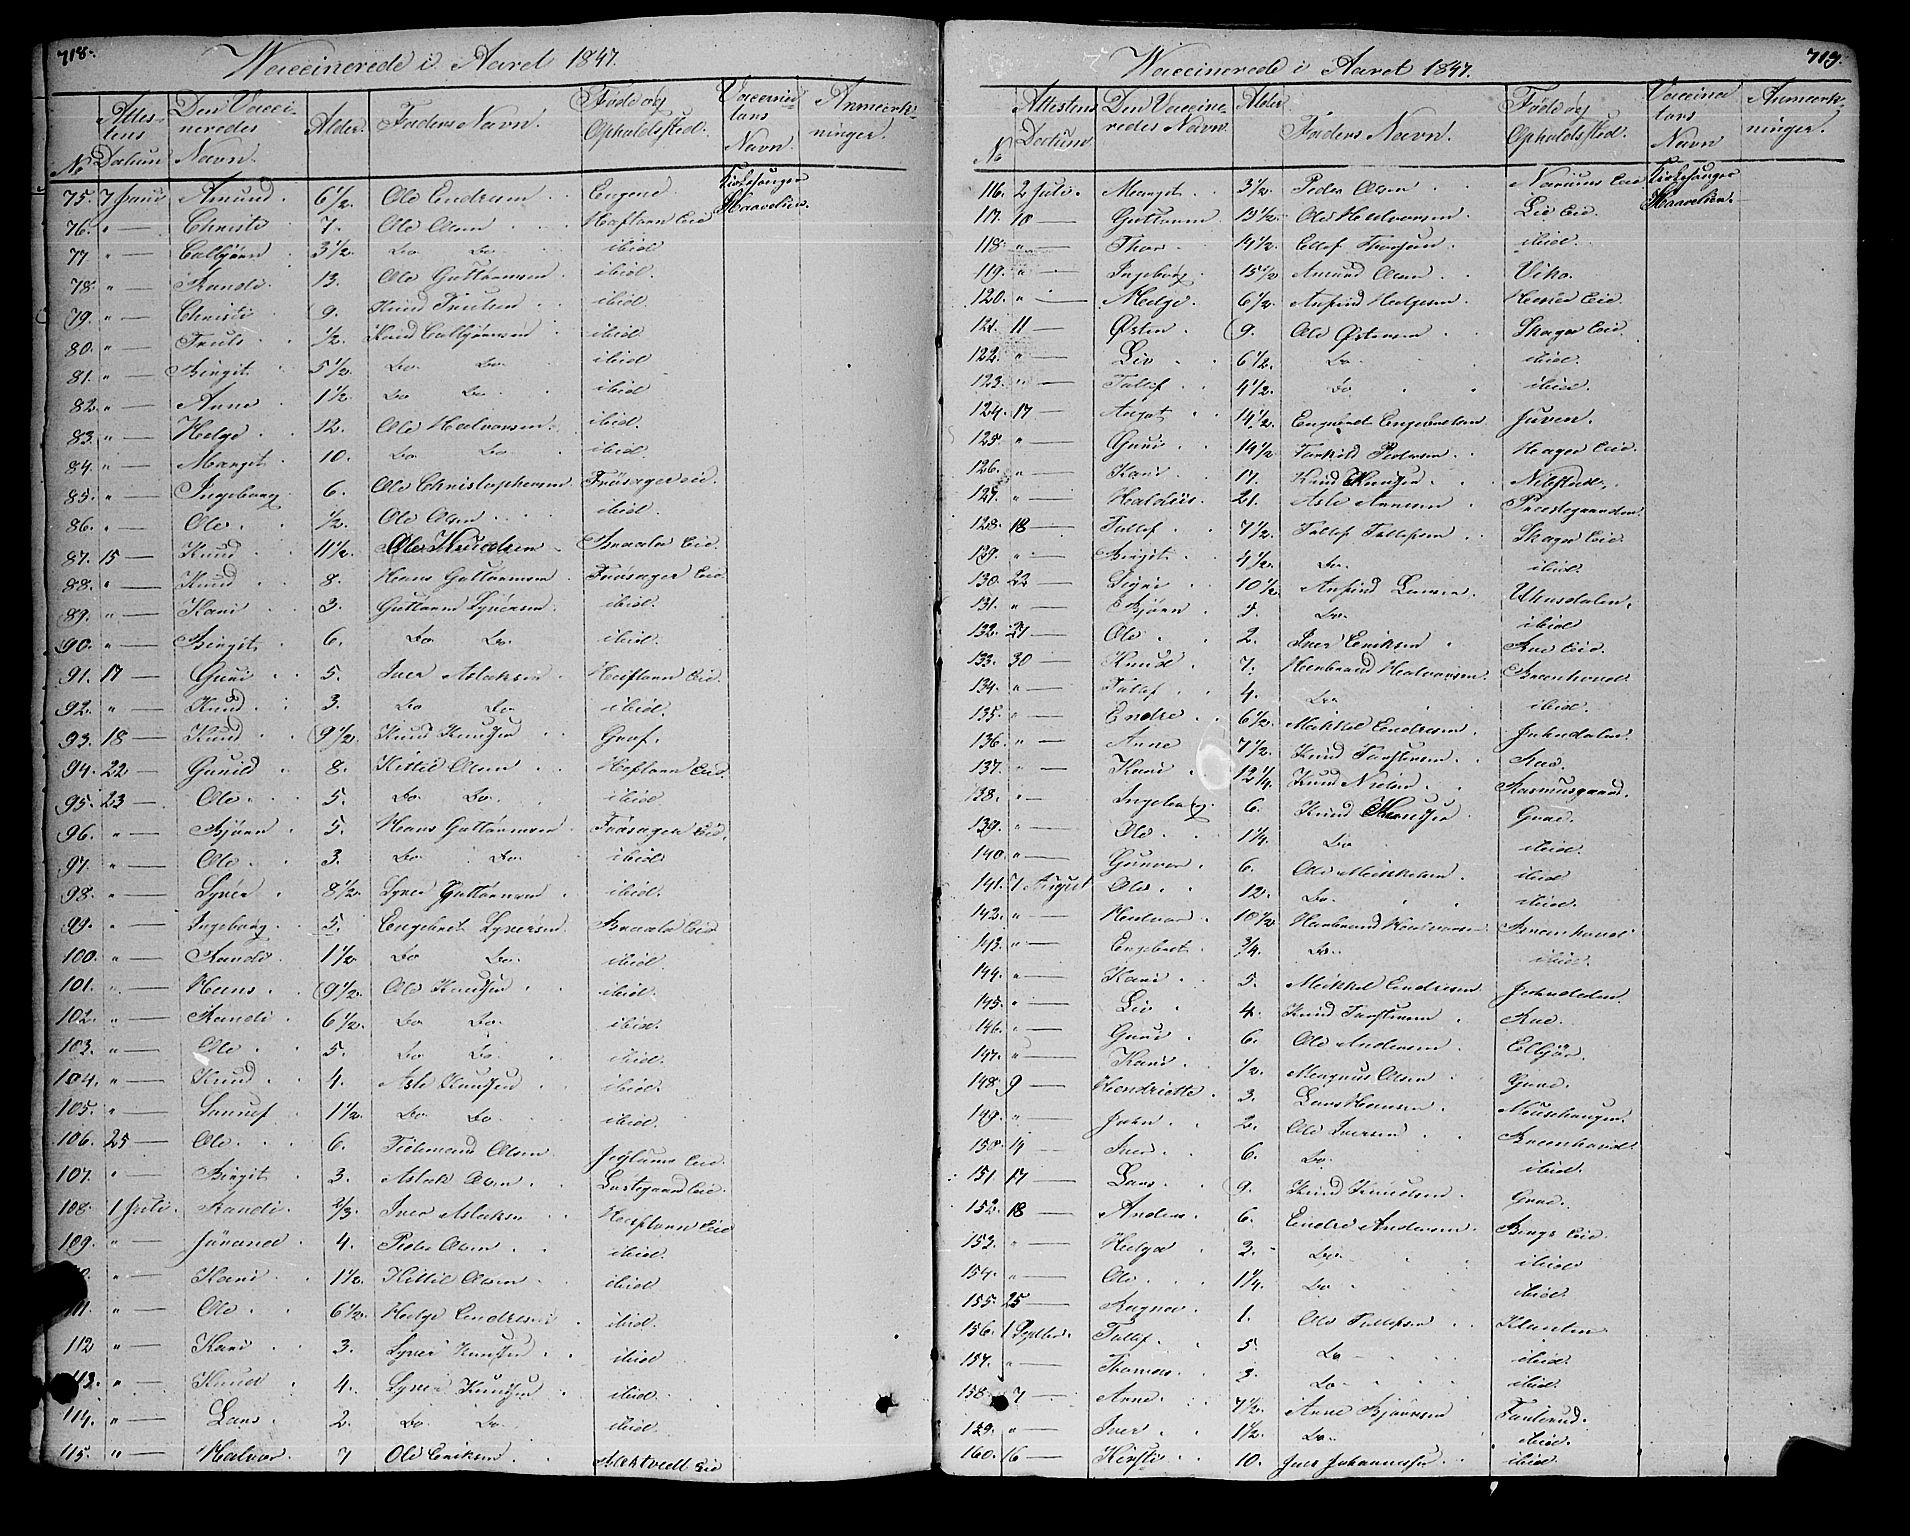 718.
Waccinerede i Aaret 1847.
No
Attestens Datum
Den Vaccineredes Navn.
Alder
Faders Navn.
Føde og Opholdssted.
Vaccinatørs Navn
Anmærkninger.
75. 7 Juni Amund 6 1/2 Ole Endresen Engene Kirkesanger
76. " — Christi 7. Ole Olsen Haftorn Eid
77 " — Calbjørn 3 1/2 Do Do ibid
78. " — Randi 13. Ole Guttormsen ibid.
79. " — Christi 9. Knud Trulsen ibid
80. " — Truls 1/2. Knud Calbjørnsen ibid
81. " — Birgit 5 1/2. Do Do ibid
82. " — Anne 1 1/2 Do Do ibid
83. " — Helge 12. Ole Halvorsen ibid.
84. " — Margit 10. Do Do ibid
85. " — Ingeborg 6. Ole Christophersen Frøsager eid.
86. " — Ole 1/2 Ole Olsen ibid.
87. 15 — Knud 11 1/2. Ole Knudsen Braata Eid
88. " — Knud 8. Hans Guttormsen Frøsager Eid
89. " — Kari 3. Guttorm Syversen ibid.
90. " — Birgit 6. Do Do ibid
91. 17 — Guri 5. Iver Aslaksen Haftorn Eid
92. " — Knud 3. Do Do ibid.
93. 18 — Knud 9 1/2 Knud Knudsen Graf.
94. 22 — Gunild 8. Kittil Olsen Haftorn Eid.
95. 23 — Ole 5. Do Do ibid
96. " — Bjørn 5. Hans Guttormsen Frøsager Eid.
97. " — Ole 3. Do Do ibid
98. " — Syver 8 1/2. Syver Guttormsen ibid.
99. " — Ingeborg 5. Engebret Syversen Braata Eid
100. " — Randi 1 1/2. Do Do ibid
101. " — Hans 9 1/2. Ole Knudsen ibid.
102. " — Randi 6 1/2. Do Do ibid.
103. " — Ole 5. Do Do ibid.
104. " — Knud 4. Asle Knudsen ibid.
105. " — Sannef 1 1/2 Do Do ibid.
106. 25 — Ole 6. Tidemand Olsen Joglums Eid.
107. " — Birgit 3. Aslak Olsen Eid.
108. 1 Juli. Randi 2/3. Iver Aslaksen Haftorn Eid
109. " — Jørand 4. Peder Olsen ibid.
" — Kari 1 1/2. Kittil Olsen ibid.
111. " — Ole 6 1/2. Helge Endresen ibid.
112 " — Kari 3. Syver Knudsen ibid.
113. " — Knud 4. Syver Knudsen ibid.
114. " — Lars 2. Do Do ibid.
115. " — Halvor 7 Ole Eriksen Eid
719.
Waccinerede i Aaret 1847.
No
Attestens Datum
Den Vaccineredes Navn.
Alder
Faders Navn.
Føde og Opholdssted.
Vaccinatørs Navn
Anmærkninger.
116. 2 Juli. Margit 3 1/2. Peder Olsen Eid Kirkesanger
117. 10 — Guttorm 13 1/2. Ole Halvorsen Lie Eid.
118. " — Thor 14 1/2 Ellef Thorsen ibid.
119. " — Ingeborg 15 1/2 Amund Olsen Viko.
120. " — Helge 6 1/2. Anfind Helgesen Eid.
121. 11 — Østen 9. Ole Østensen Skager Eid.
122. " — Liv 6 1/2. Do ibid.
123. " — Tollef 4 1/2. Do ibid.
124. 17 — Aagot 14 1/2 Engebret Engebretsen Juven.
125. " — Guri 14 1/2 Torkild Pedersen Hager Eid.
126. " — Kari 17. Knud Knudsen
127. " — 21. Asle Arnesen Præstegaarden
128. 18 — Tollef 7 1/2. Tollef Tollefsen Skager Eid.
129. " — Birgit 4 1/2. Do ibid.
130. 22 — Sigri 10 1/2 Anfind Larsen
131. " — Bjørn 5. Do ibid
132. 27 — Ole 2. Iver Eriksen Rue Eid.
133. 30 — Knud 7. Herbrand Halvorsen
134. " — Tollef 4. Do ibid.
135. " — Endre 6 1/2. Mikkel Endresen Johndalen.
136. " — Anne 7 1/2. Knud Torstensen Rue.
137. " — Kari 12 1/4. Knud Nielsen Rasmusgaard.
138. " — Ingeborg 6. Knud Knudsen
139. " — Ole 1 1/4. Do ibid.
140. " — Gunvor 6. Ole Mikkelsen ibid
141. 7 August Ole 12. Do ibid.
142. " — Halvor 10 1/2 Herbrand Halvorsen
143. " — Engebret 3/4. Do ibid.
144. " — Kari 5. Mikkel Endresen Johndalen
145. " — Liv 4. Knud Torstensen Rue.
146. " — Guri 6. Ole Andersen
147. " — Kari 1/2. Magnus Olsen
148. 9 — Hendriette 3. Lars Hansen
149. " — John 2. Ole Iversen
150. 14 — Iver 6. Do ibid.
151 17 — Lars 9. Knud Knudsen
152. 18 — Anders 6. Endre Andersen Eid.
153. " — Helge 3. Do ibid
154. " — Ole 1 1/4. Do ibid.
155. 25 — Ragne 1. Ole Tollefsen
156. 1 Septbr. Tollef 5 Do ibid.
157. " — Thomas 3. Do ibid.
158. 7 — Arne 7 1/2. Arne Bjørnsen
159. " — Iver 1 1/2. Do ibid.
160. 16 — Kirsti 10. Iver Johannesen ibid.